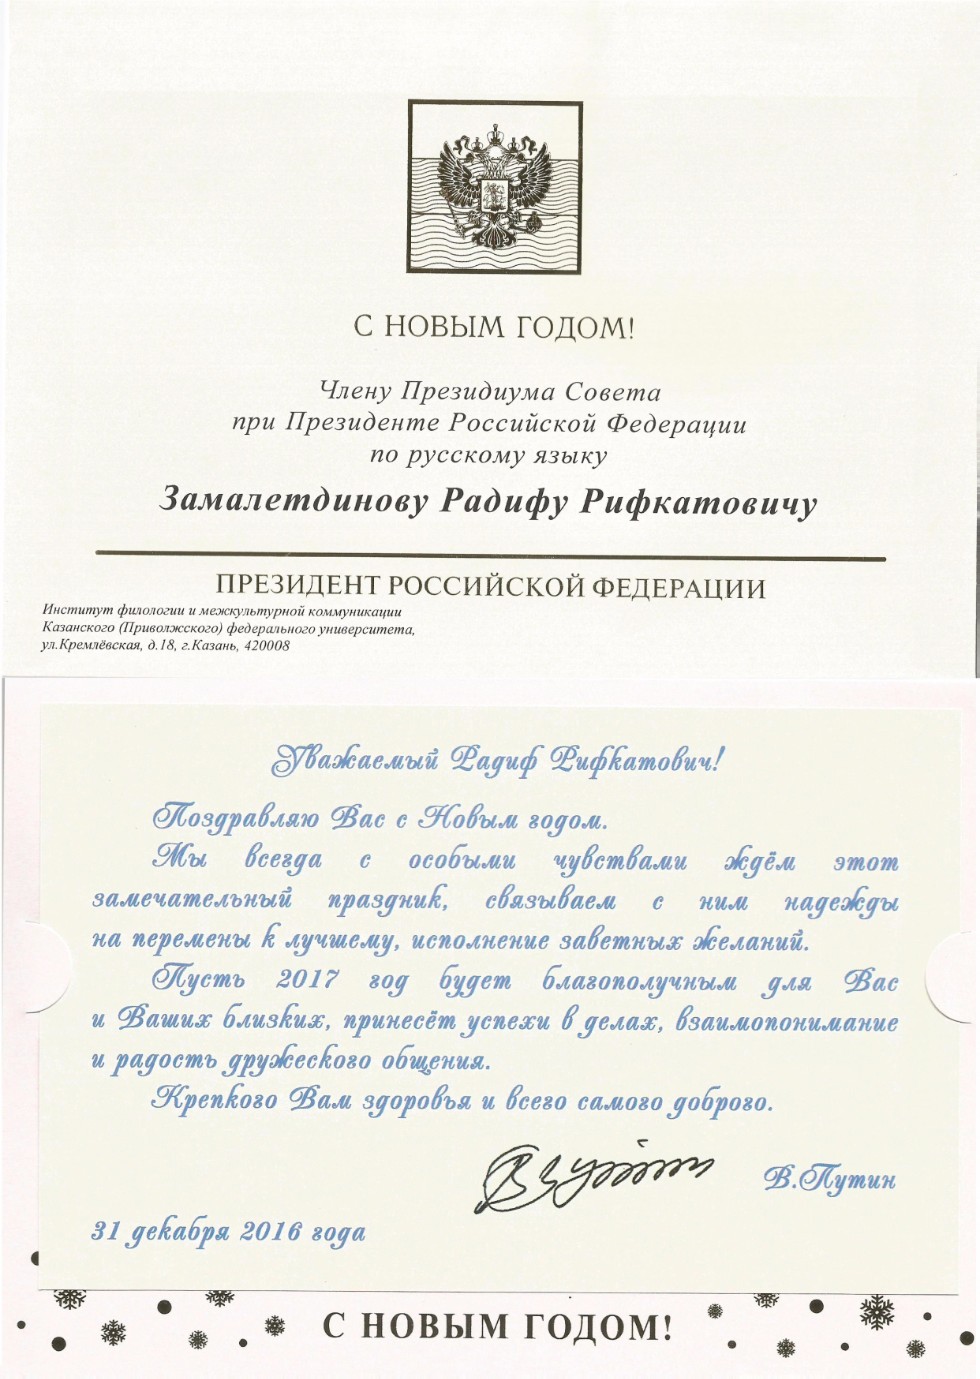 С НОВЫМ ГОДОМ!
Члену Президиума Совета
при Президенте Российской Федерации
по русскому языку
Замалетдинову Радифу Рифкатовичу
ПРЕЗИДЕНТ РОССИЙСКОЙ ФЕДЕРАЦИИ
Институт филологии и межкультурной коммуникации
Казанского (Приволжского) федерального университета,
ул.Кремлёвская, д.18, г.Казань, 420008
Уважаемый Радиф Рифкатович!
Поздравляю Вас с Новым годом.
Мы всегда с особыми чувствами ждём этот
замечательный праздник, связываем с ним надежды
на перемены к лучшему, исполнение заветных желаний.
Пусть 2017 год будет благополучным для Вас
и Ваших близких, принесёт успехи в делах, взаимопонимание
и радость дружеского общения.
Крепкого Вам здоровья и всего самого доброго.
В.Путин
31 декабря 2016 года
С НОВЫМ ГОДОМ!